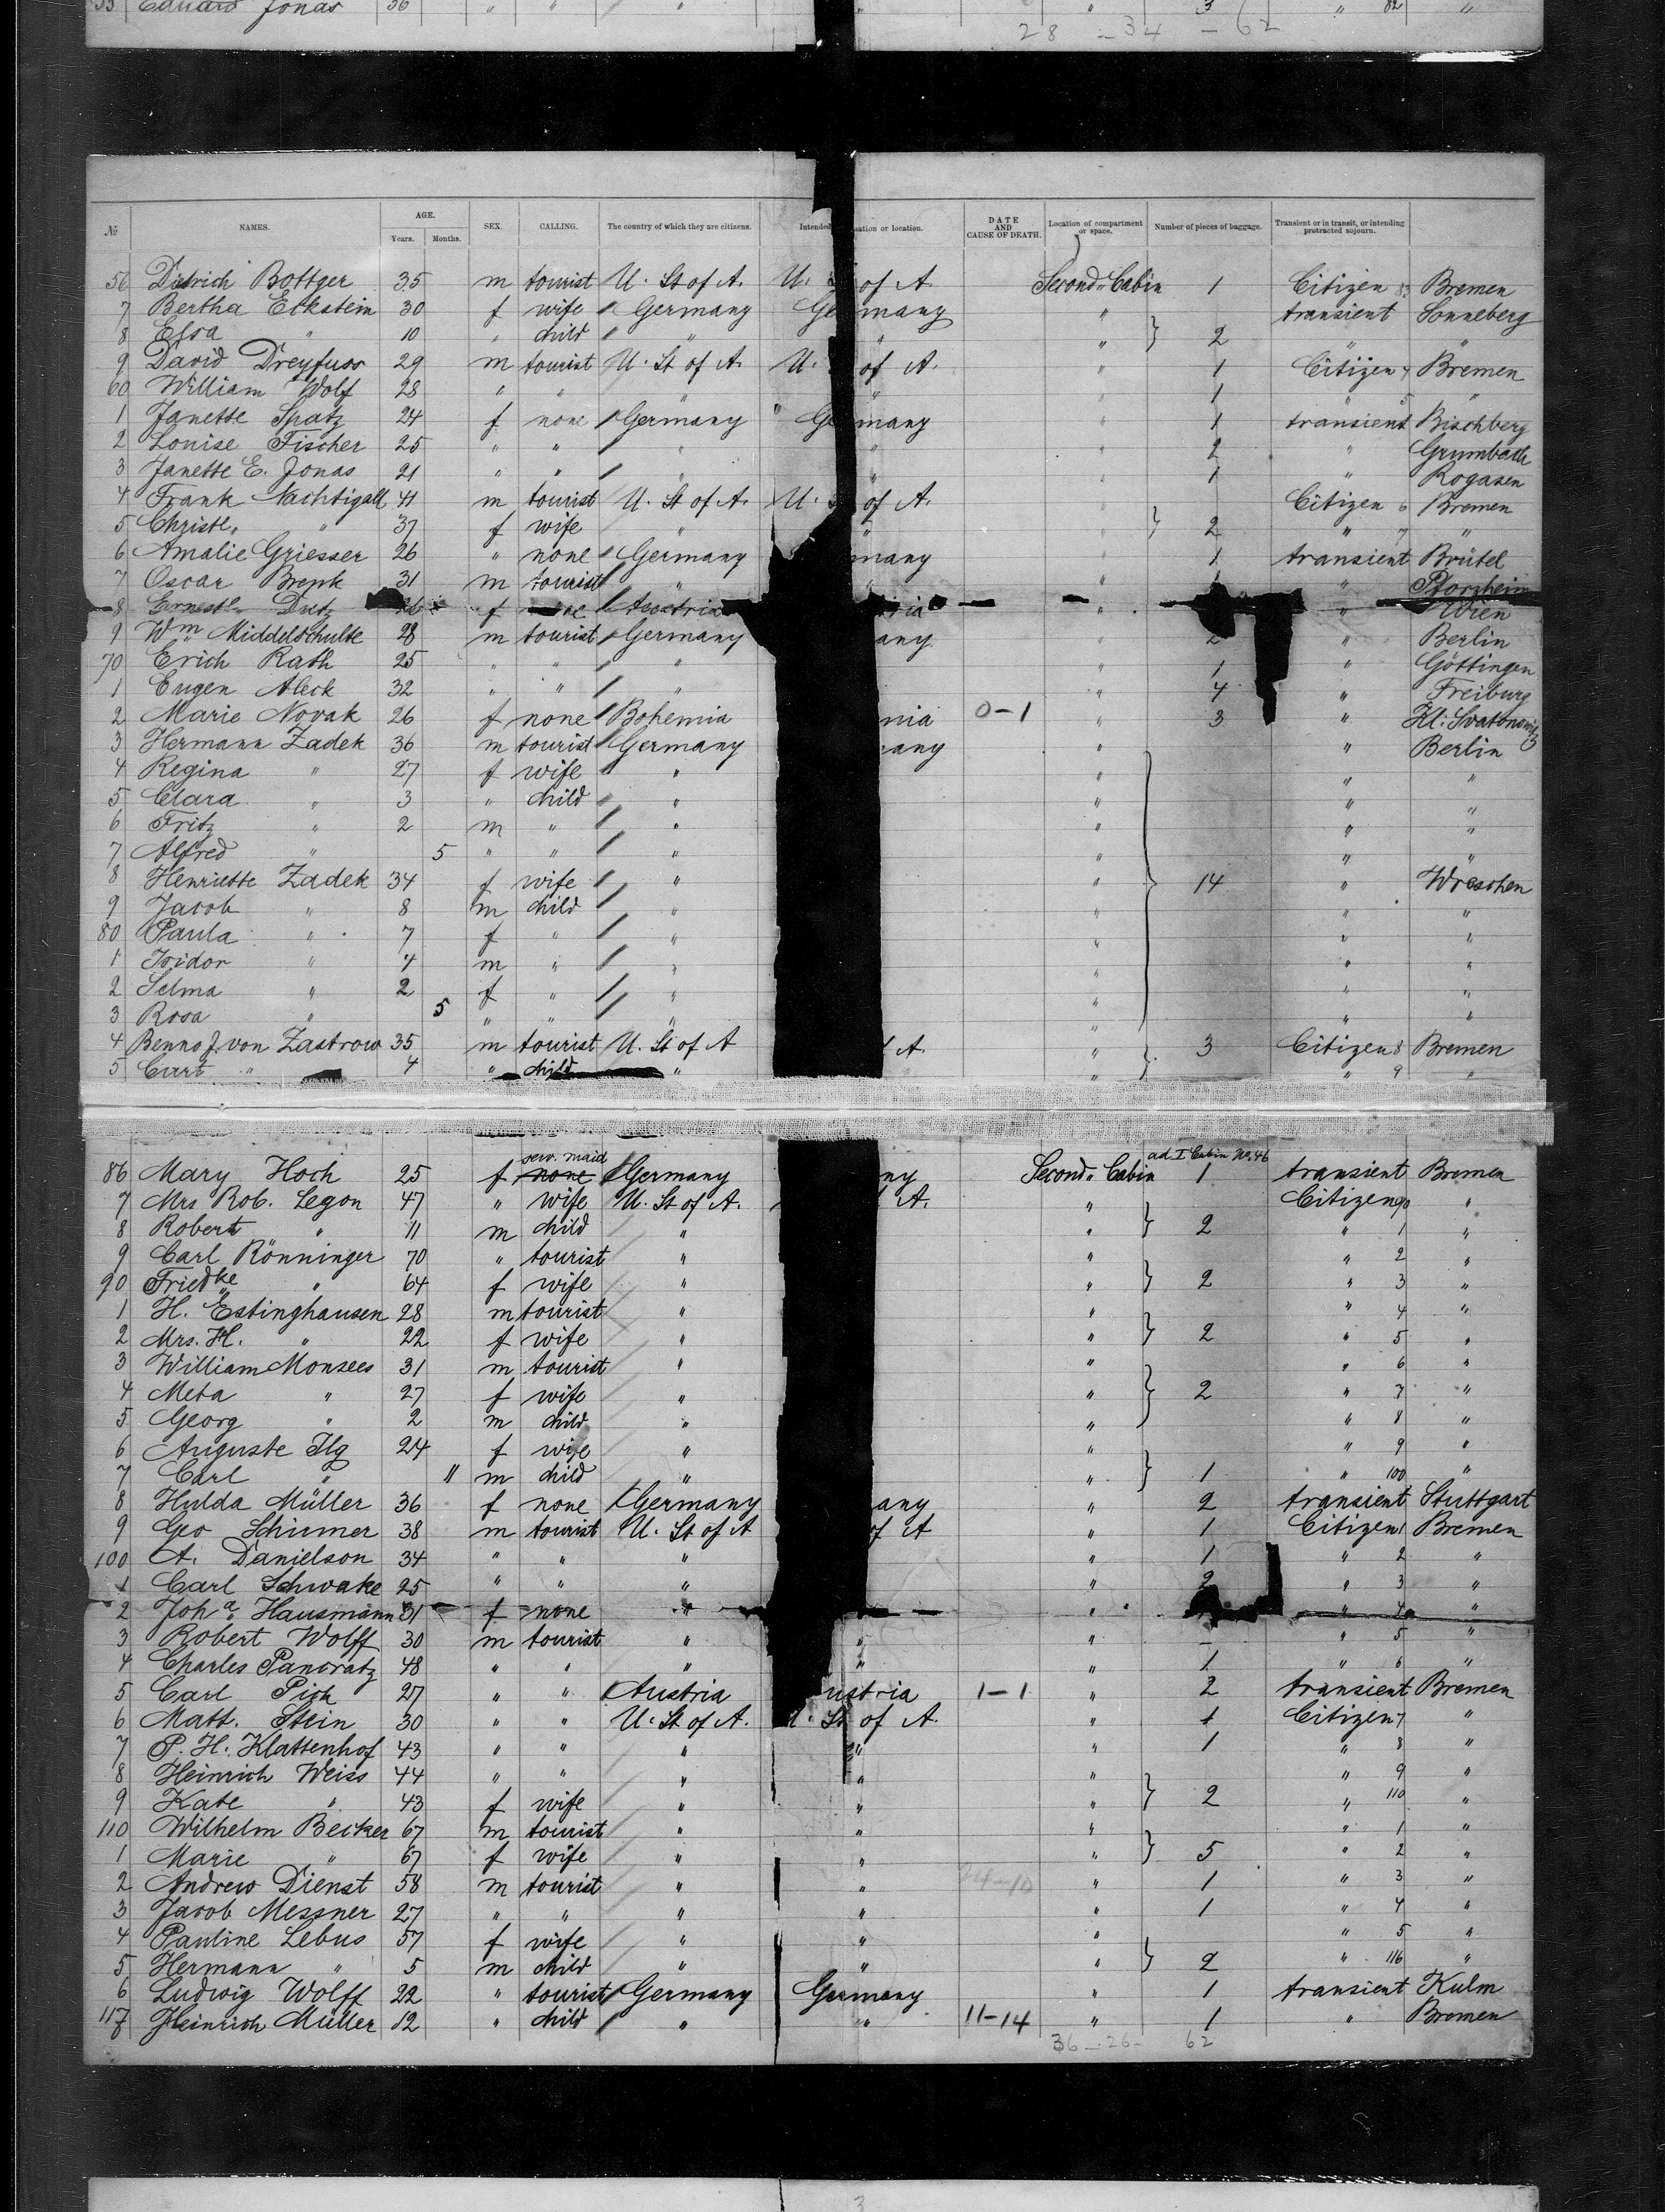 55 Eduard Jonas 36 " " " " " 3 " 82 "
28 – 34 – 62
№ NAMES. AGE. Years. Months. SEX. CALLING. The country of which they are citizens. Intended ation or location. DATE AND CAUSE OF DEATH. Location of compartment or space. Number of pieces of baggage. Transient or in transit, or intending protracted sojourn.
56 Dietrich Bottger 35 m tourist U. St of A. U. S of A Second Cabin 1 Citizen Bremen
7 Bertha Eckstein 30 f wife Germany Germany " transient Sonneberg
8 Elsa " 10 " child " " " " } 2 " "
9 David Dreyfuss 29 m tourist U. St of A. U. of A. " 1 Citizen 4 Bremen
60 William Wolf 28 " " " " " 1 " 5 "
1 Janette Spatz 24 f none Germany " Germany " 1 transient Bischberg
2 Louise Fischer 25 " " " " " 2 " Grumbach
3 Janette E. Jonas 21 " " " " 1 " Rogasen
4 Frank Nachtigall 41 m tourist U. St of A. U. S of A. " Citizen 6 Bremen
5 Christe. " 37 f wife " " " } 2 " 7 "
6 Amalie Griesser 26 " none Germany many " 1 transient Brütel
7 Oscar Brenk 31 m tourist " " " " Pforzheim
8 Ernest. 26 f Austria ria " " Wien
9 Wm Middelschulte 28 m tourist Germany any. " 2 " Berlin
70 Erich Rath 25 " " " " 1 " Göttingen
1 Eugen Aleck 32 " " " " 4 " Freiburg
2 Marie Novak 26 f none Bohemia nia 0–1 " 3 " Kl: Svatonowitz
3 Hermann Zadek 36 m tourist Germany any " " Berlin
4 Regina " 27 f wife " " " "
5 Clara " 3 " child " " " "
6 Fritz " 2 m " " " " "
7 Alfred " 5 " " " " " "
8 Henriette Zadek 34 f wife " " } 14 " Wreschen
9 Jacob " 8 m child " " " "
80 Paula " 7 f " " " " "
1 Isidor " 4 m " " " " "
2 Selma " 2 f " " " " "
3 Rosa " 5 " " " " " "
4 Benno J. von Zastrow 35 m tourist U. St of A A. " } 3 Citizen 8 Bremen
5 Curt " 4 " child " " " 9 "
serv. maid ad I Cabin No. 46
86 Mary Hoch 25 f none Germany ny Second Cabin 1 transient Bremen
7 Mrs Rob. Legon 47 " wife U. St of A. A. " Citizen 90 "
8 Robert " 11 m child " " } 2 " 1 "
9 Carl Rönninger 70 " tourist " " " 2 "
90 Friedke " 64 f wife " " } 2 " 3 "
1 H. Estinghausen 28 m tourist " " " 4 "
2 Mrs. H. " 22 f wife " " } 2 " 5 "
3 William Monsees 31 m tourist " " " 6 "
4 Meta " 27 f wife " " } 2 " 7 "
5 Georg " 2 m child " " " 8 "
6 Auguste Ilg 24 f wife " " " 9 "
7 Carl " 11 m child " " } 1 " 100 "
8 Hulda Müller 36 f none Germany any " 2 transient Stuttgart
9 Geo Schirmer 38 m tourist U. St of A of A " 1 Citizen 1 Bremen
100 A. Danielson 34 " " " " 1 " 2 "
1 Carl Schwake 25 " " " " 2 " 3 "
2 Joha. Hausmann 31 f none " " " 4 "
3 Robert Wolff 30 m tourist " " " – " 5 "
4 Charles Pancratz 48 " " " " " 1 " 6 "
5 Carl Pick 27 " " Austria ustria 1–1 " 2 transient Bremen
6 Matt. Stein 30 " " U. St of A. U. St of A. " 1 Citizen 7 "
7 P. H. Klattenhof 43 " " " " " 1 " 8 "
8 Heinrich Weiss 44 " " " " " " 9 "
9 Kate " 43 f wife " " " } 2 " 110 "
110 Wilhelm Becker 67 m tourist " " " " 1 "
1 Marie " 67 f wife " " " } 5 " 2 "
2 Andrew Dienst 58 m tourist " " " 1 " 3 "
3 Jacob Messner 27 " " " " " 1 " 4 "
4 Pauline Lebus 57 f wife " " " " 5 "
5 Hermann " 5 m child " " " } 2 " 116 "
6 Ludwig Wolff 22 " tourist Germany Germany " 1 transient Kulm
117 Heinrich Müller 12 " child " " 11–14 " 1 " Bremen
36 – 26 – 62
3